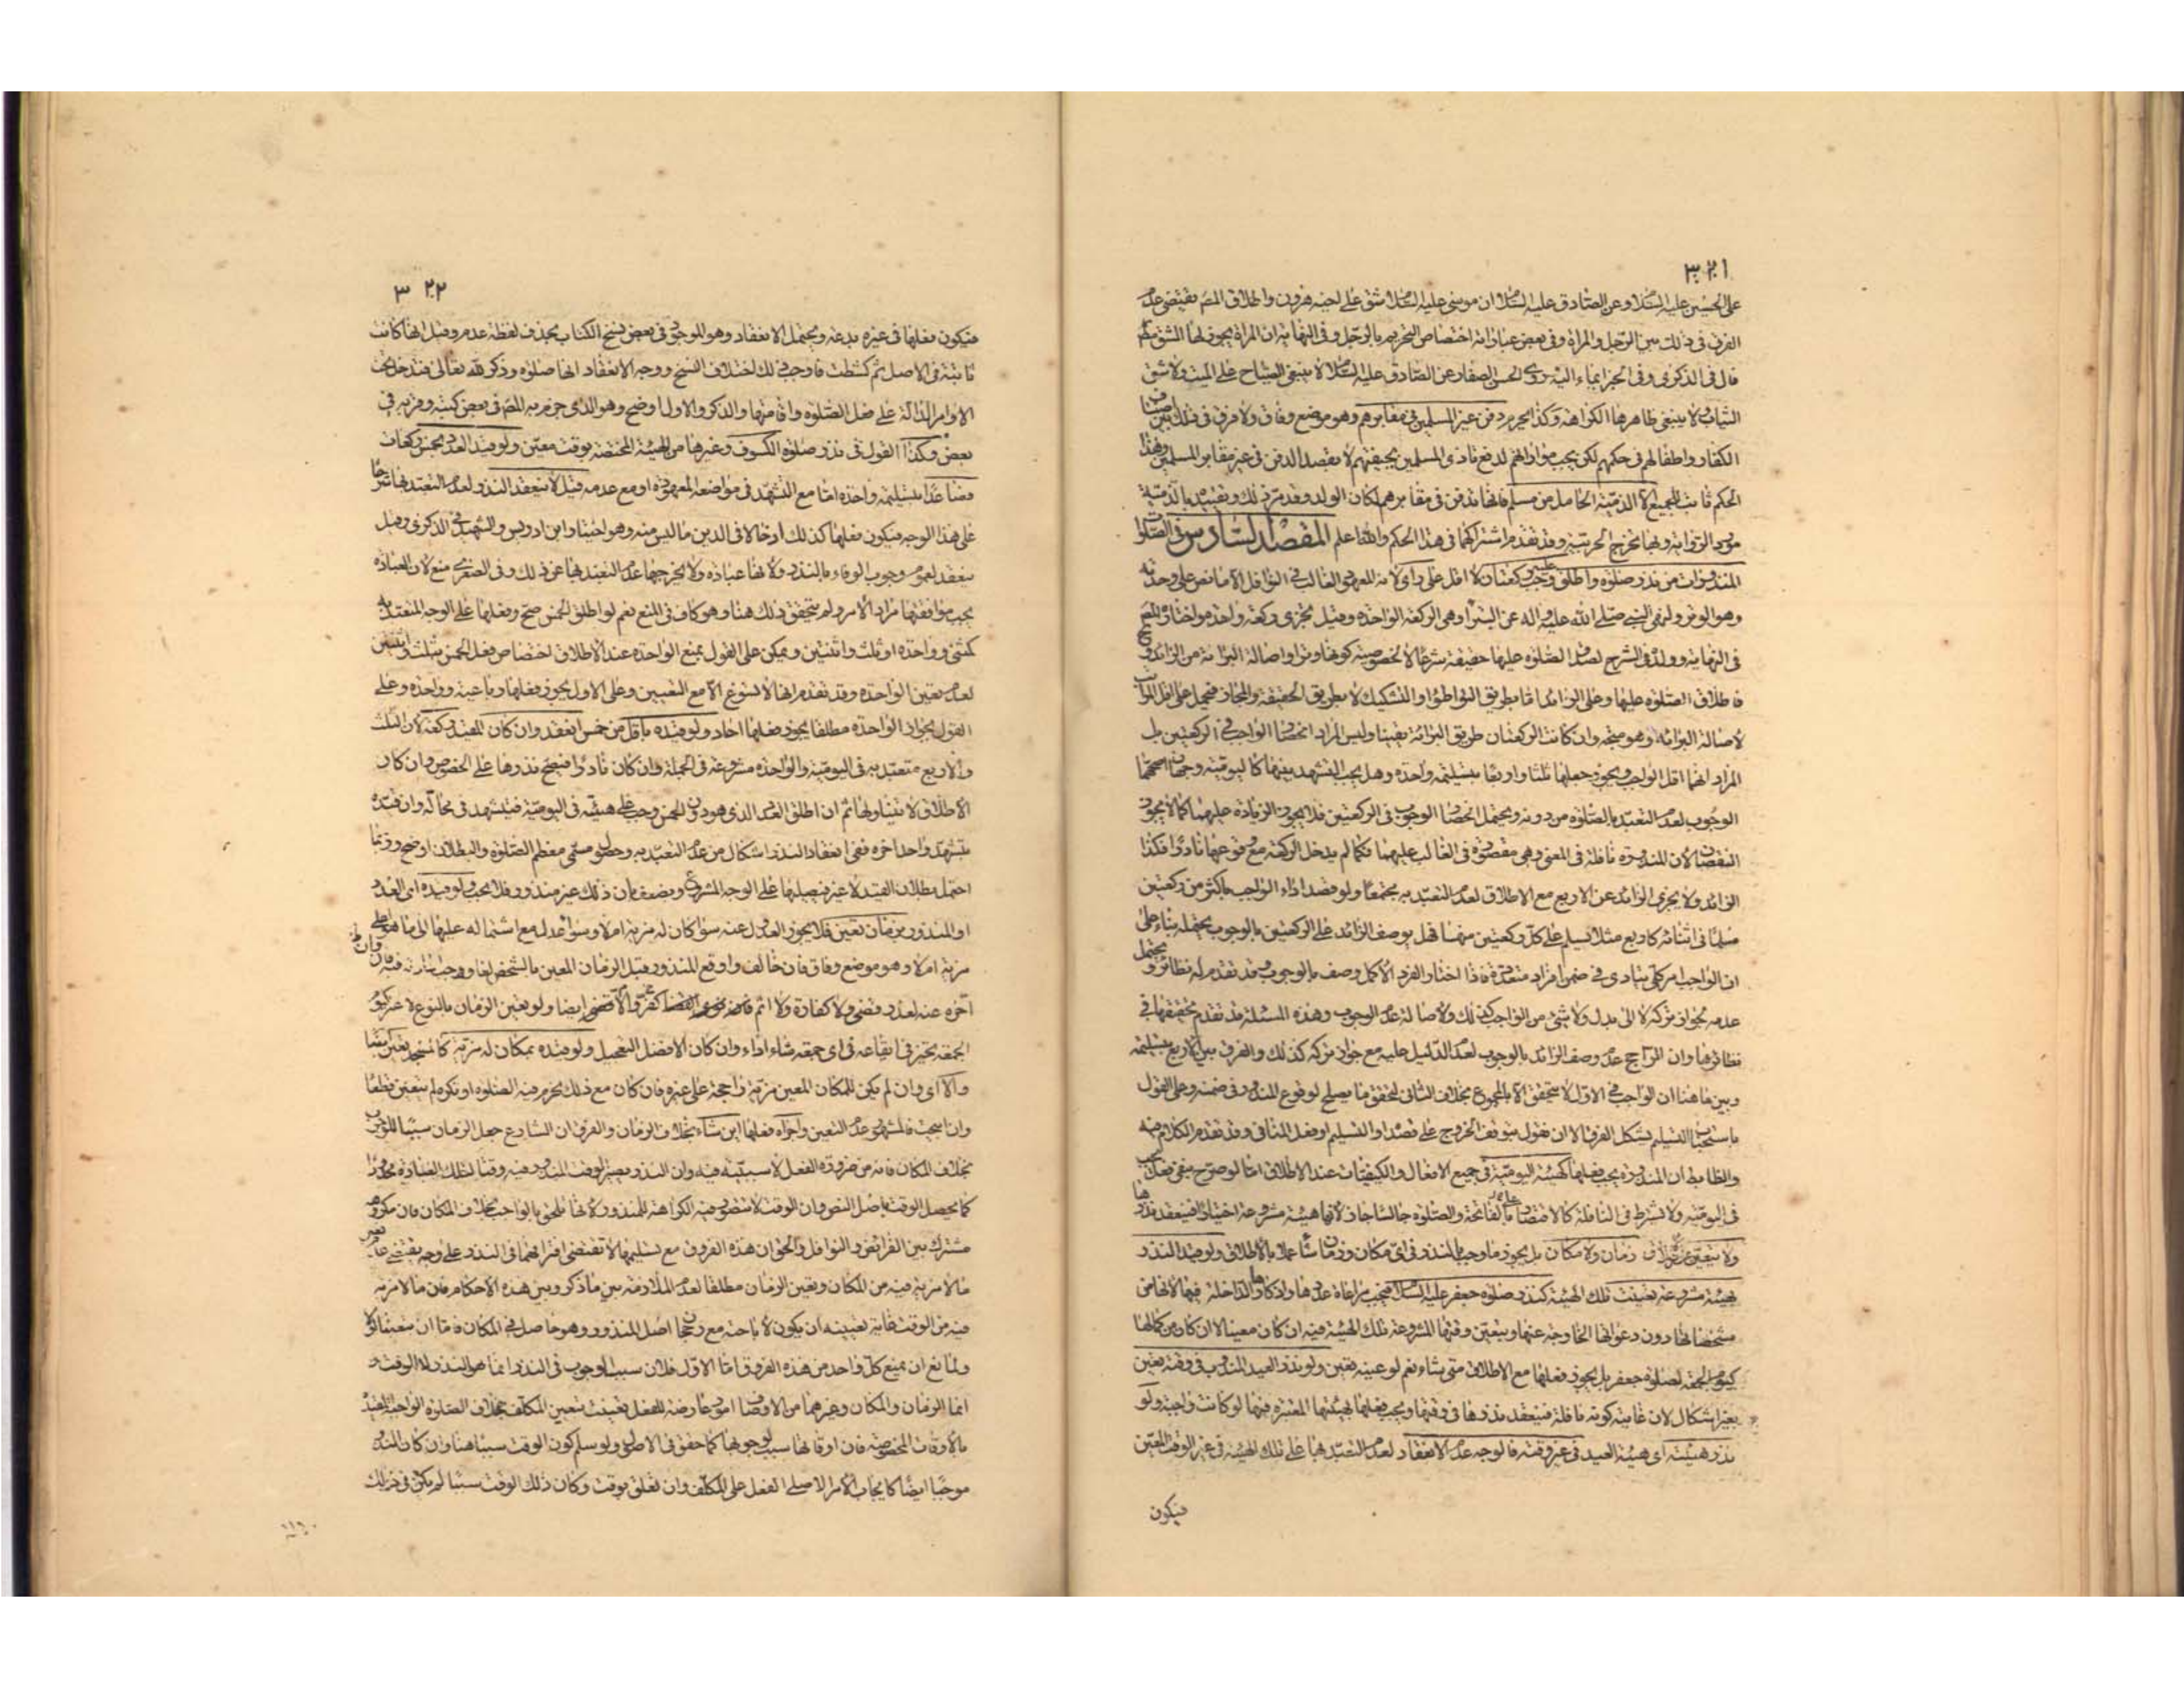 ٣٢١
على الحسين عليه السلام وعن الصادق عليه السلام ان موسى عليه السلام شق على اخيه هرون واطلاق المصـ يقتضى عدم
الفرق فى ذلك بين الرجل والمراة وفى بعض عباراته اختصاص التحريم بالرجل وفى النهاية ان المراة يجوز لها الشق مطـ
قال فى الذكرى وفى الخبر ايماء اليه روى الحسن الصفار عن الصادق عليه السلام لا ينبغى الصياح على الميت ولا شق
الثياب ولا ينبغى ظاهرها الكراهة وكذا يحرم دفن غير المسلمين فى مقابرهم وهو موضع وفاق ولا فرق فى ذلك بين
الكفار واطفالهم فى حكمهم لكن يجب مواراتهم لدفع تاذى المسلمين بجيفتهم لا بقصد الدفن فى غير مقابر المسلمين وهذا
الحكم ثابت للجميع الا الذمية الحامل من مسلم فانها تدفن فى مقابرهم لمكان الولد وقد مر ذلك وتقييده بالذمية
مورد الرواية وبها يخرج الحربية وقد تقدم اشتراكهما فى هذا الحكم والله اعلم المقصد السادس فى الصلوات
المنذورات من نذر صلوة واطلق وجب عليه ركعتان لا اقل على راى لانه المعهود الغالب فى النوافل الا ما نص على وحدته
وهو الوتر ولنهى النبى صلى الله عليه واله عن البتراء وهى الركعة الواحدة وقيل يجزى ركعة واحدة هو اختاره المصـ
فى النهاية وولده فى الشرح لصدق الصلوة عليها حقيقة شرعا لا لخصوصية كونها وترا واصالة البرائة من الزائد
فاطلاق الصلوة عليها وعلى الزائد اما بطريق التواطئ او التشكيك لا بطريق الحقيقة والمجاز فيحمل على اقل المراتب
لاصالة البرائة وهو متجه وان كانت الركعتان طريق البرائة يقينا وليس المراد انحصار الواجب فى الركعتين بل
المراد انهما اقل الواجب ويجوز جعلها ثلثا واربعا بتسليمة واحدة وهل يجب التشهد بينهما كاليومية وجهان اصحهما
الوجوب لعدم التعبد بالصلوة من دونه ويحتمل انحصار الوجوب فى الركعتين فلا يجوز الزيادة عليهما كما لا يجوز
النقصان لان المنذورة نافلة فى المعنى وهى مقصورة فى الغالب عليهما فكما لم يدخل الركعة مع وقوعها نادرا فكذا
الزائد ولا يجزى الزائد عن الاربع مع الاطلاق لعدم التعبد به مجتمعا ولو قصد اداء الواجب باكثر من ركعتين
مسلما فى اثنائه كاربع مثلا يسلم على كل ركعتين منها فهل يوصف الزائد على الركعتين بالوجوب يحتمله بناء على
ان الواجب امر كلى يتادى فى ضمن افراد متعددة فاذا اختار الفرد الاكمل وصف بالوجوب وقد تقدم له نظائر ويحتمل
عدمه لجواز تركه لا الى بدل ولا شئ من الواجب كذلك ولاصالة عدم الوجوب وهذه المسئلة قد تقدم تحقيقها فى
نظائرها وان الراجح عدم وصف الزائد بالوجوب لعدم الدليل عليه مع جواز تركه كذلك والفرق بين الاربع بتسليمة
وبين ما هنا ان الواجب فى الاول لا يتحقق الا بالمجموع بخلاف الثانى لتحقق ما يصلح لوقوع المنذور فى ضمنه وعلى القول
باستحباب التسليم يشكل الفرق الا ان نقول بتوقف الخروج على قصده او التسليم او فعل المنافى وقد تقدم الكلام فيه
والظاهر ان المنذورة يجب فعلها كهيئة اليومية فى جميع الافعال والكيفيات عند الاطلاق اما لو صرح بنفى ما يجب
فى اليومية ولا يشترط فى النافلة كالاقتصار على الفاتحة والصلوة جالسا جاز لانها هيئة مشروعة اختيارا فينعقد نذرها
ولا يتعين زمان ولا مكان بل يجوز ما وجب بالنذر فى اى مكان وزمان شاء عملا بالاطلاق ولو قيد النذر
بهيئة مشروعة تعينت تلك الهيئة كنذر صلوة جعفر عليه السلام فيجب مراعاة عددها واذكارها الداخلة فيها لانها من
مشخصاتها دون دعواتها الخارجة عنها ويتعين وقتها المشروعة تلك الهيئة فيه ان كان معينا لا ان كان من كمالها
كيوم الجمعة لصلوة جعفر بل يجوز فعلها مع الاطلاق متى شاء نعم لو عينه تعين ولو نذر العيد المندوب فى وقته تعين
بغير اشكال لان غايته كونه نافلة فينعقد نذرها فى وقتها ويجب فعلها بهيئتها المعتبرة فيها لو كانت واجبة ولو
نذر هيئته اى هيئة العيد فى غير وقته فالوجه عدم الانعقاد لعدم التعبد بها على تلك الهيئة فى غير الوقت المعين
فيكون
٣٢٢
فيكون فعلها فى غيره بدعة ويحتمل الانعقاد وهو الموجود فى بعض نسخ الكتاب بحذف لفظة عدم وقيل انها كانت
ثابتة فى الاصل ثم كشطت فاوجب ذلك اختلاف النسخ ووجه الانعقاد انها صلوة وذكر لله تعالى فتدخل تحت
الاوامر الدالة على فعل الصلوة واقامتها والذكر والاول اوضح وهو الذى جزم به المصـ فى بعض كتبه وقربه فى
بعض وكذا القول فى نذر صلوة الكسوف وغيرها من الهيئة المختصة بوقت معين ولو قيد العدد بخمس ركعات
فصاعدا بتسليمة واحدة اما مع التشهد فى مواضعه المعهودة او مع عدمه قيل لا ينعقد النذر لعدم التعبد بها شرعا
على هذا الوجه فيكون فعلها كذلك ادخالا فى الدين ما ليس منه وهو اختيار ابن ادريس والشهيد فى الذكرى وقيل
ينعقد لعموم وجوب الوفاء بالنذر ولانها عبادة ولا يخرجها عدم التعبد بها عن ذلك وفى الصغرى منع لان العبادة
يجب موافقتها مراد الامر ولم يتحقق ذلك هنا وهو كاف فى المنع نعم لو اطلق الخمس صح وفعلها على الوجه المتعبد به
كمثنى وواحدة او ثلث واثنتين ويمكن على القول بمنع الواحدة عند الاطلاق اختصاص فعل الخمس بثلث واثنتين
لعدم تعين الواحدة وقد تقدم انها لا تسوغ الا مع التعيين وعلى الاول يجوز فعلها رباعية وواحدة وعلى
القول بجواز الواحدة مطلقا يجوز فعلها احاد ولو قيده باقل من خمس انعقد وان كان المقيد ركعة لان الثلث
والاربع متعبد به فى اليومية والواحدة مشروعة فى الجملة وان كان نادرا فيصح نذرها على الخصوص وان كان
الاطلاق لا يتناولها ثم ان اطلق العدد الذى هو دون الخمس وجب على هيئته فى اليومية فيتشهد فى محاله وان قيده
بتشهد واحد اخره ففى انعقاد النذر اشكال من عدم التعبد به وحصول مسمى معظم الصلوة والبطلان اوضح وربما
احتمل بطلان القيد لا غير فيصليها على الوجه المشروع ويضعف بان ذلك غير منذور فلا يجب ولو قيده اى العدد
او المنذور بزمان تعين فلا يجوز العدول عنه سواء كان له مزية ام لا وسواء عدل مع اشتماله عليها الى ما هو اعلى
مزية ام لا وهو موضع وفاق فان خالف واوقع المنذور قبل الزمان المعين بالشخص لغا ووجب اعادته فيه فان
اخره عنه لعذر قضى ولا كفارة ولا اثم ايضا ولو تعين الزمان بالنوع لا غير كيوم
الجمعة تخير فى ايقاعه فى اى جمعة شاء اداء وان كان الافضل التعجيل ولو قيده بمكان له مزية كالمسجد تعين ايضا
والا اى وان لم يكن للمكان المعين مزية راجحة على غيره فان كان مع ذلك يحرم فيه الصلوة او تكره لم يتعين قطعا
وان ابيحت فالمشهور عدم التعين واجزاه فعلها اين شاء بخلاف الزمان والفرق ان الشارع جعل الزمان سببا للوجوب
بخلاف المكان فانه من ضرورة الفعل لا سببية فيه وان النذر يصير الوقت المنذور فيه وقتا لتلك العبادة محدودا
كما يحصل الوقت باصل النص وان الوقت لا يتصور فيه الكراهة للمنذور لانها تلحق بالواجب بخلاف المكان فان مكروهه
مشترك بين الفرائض والنوافل والحق ان هذه الفروق مع تسليمها لا تقتضى افتراقهما فى النذر على وجه يقتضى عدم تعين
ما لا مزية فيه من المكان وتعين الزمان مطلقا لعدم الملازمة بين ما ذكر وبين هذه الاحكام فان ما لا مزية
فيه من الوقت غاية تعيينه ان يكون لاباحته مع رجحان اصل المنذور وهو حاصل فى المكان فاما ان يتعينا او لا
ولمانع ان يمنع كل واحد من هذه الفروق اما الاول فلان سبب الوجوب فى النذر انما هو النذر لا الوقت و
انما الزمان والمكان وغيرهما من الاوصاف امور عارضة للفعل تعينت بتعيين المكلف بخلاف الصلوة الواجبة المقيدة
بالاوقات المخصوصة فان اوقاتها سبب لوجوبها كما حقق فى الاصول ولو سلم كون الوقت سببا هنا وان كان النذر
موجبا ايضا كايجاب الامر الاصلى الفعل على المكلف وان تعلق بوقت وكان ذلك الوقت سببا لم يكن فى ذلك